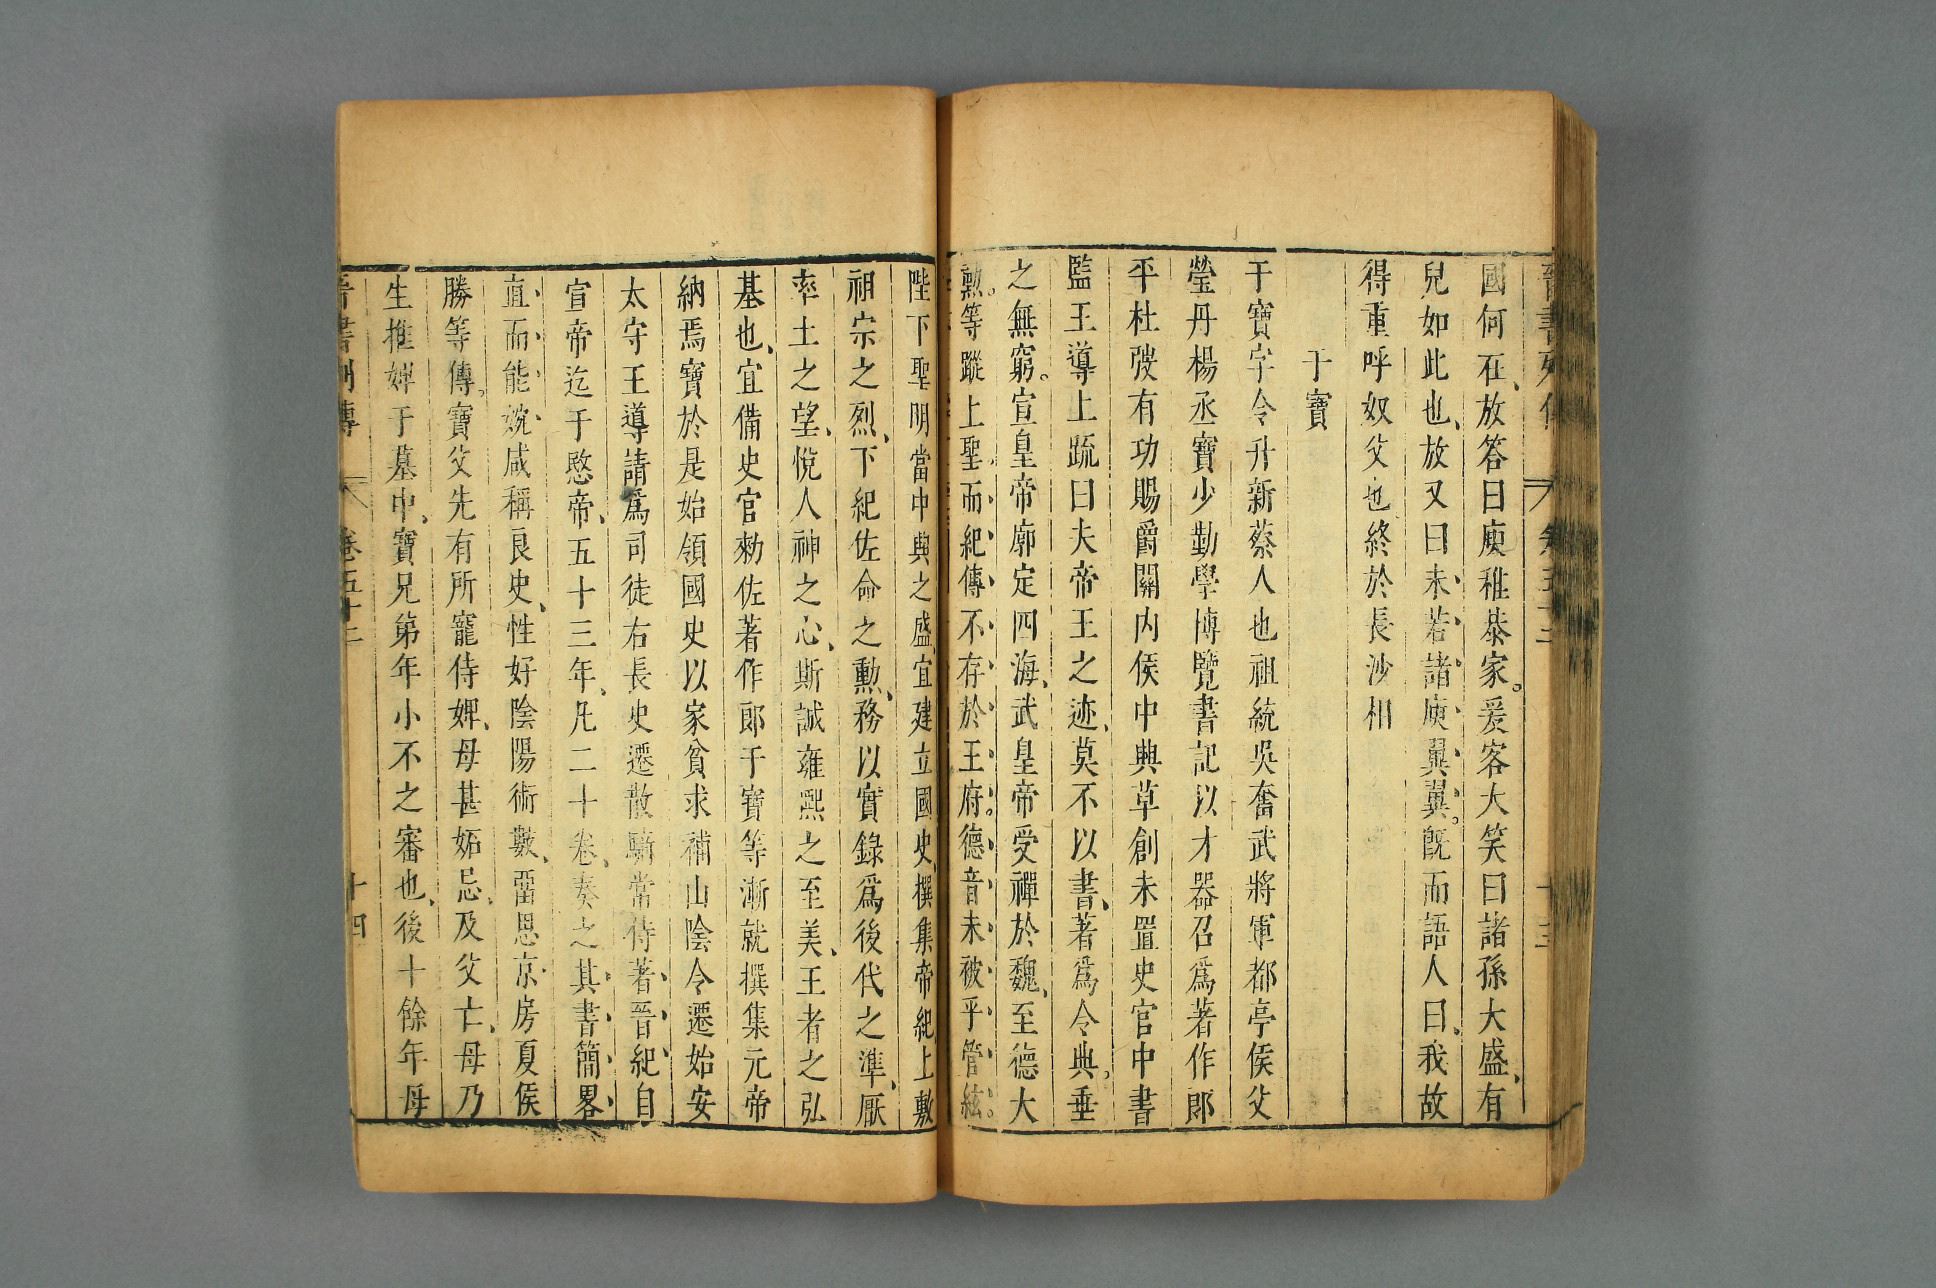 晉書列傳 卷五十二 十三
國何在放答曰庾稚恭家爰客大笑曰諸孫大盛有
兒如此也放又曰未若諸庾翼翼既而語人曰我故
得重呼奴父也終於長沙相
干寶
干寶字令升新蔡人也祖統吳奮武將軍都亭侯父
瑩丹楊丞寶少勤學博覽書記以才器召爲著作郎
平杜弢有功賜爵關內侯中興草創未置史官中書
監王導上疏曰夫帝王之迹莫不以書著爲令典垂
之無窮宣皇帝廓定四海武皇帝受禪於魏至德大
勲等蹤上聖而紀傳不存於王府德音未被乎管絃
陛下聖明當中興之盛宜建立國史撰集帝紀上敷
祖宗之烈下紀佐命之勲務以實錄爲後代之準厭
率土之望悅人神之心斯誠雍熙之至美王者之弘
基也宜備史官勅佐著作郎干寶等漸就撰集元帝
納焉寶於是始領國史以家貧求補山陰令遷始安
太守王導請爲司徒右長史遷散騎常侍著晉紀自
宣帝迄于愍帝五十三年凡二十卷奏之其書簡畧
直而能婉咸稱良史性好陰陽術數畱思京房夏侯
勝等傳寶父先有所寵侍婢母甚妬忌及父亡母乃
生推婢于墓中寶兄弟年小不之審也後十餘年母
晉書列傳 卷五十二 十四